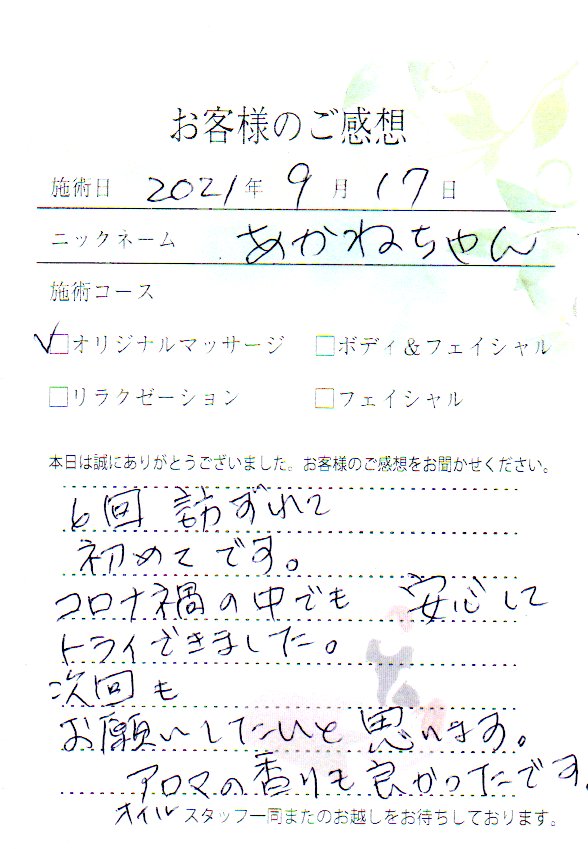 お客様のご感想
施術日 2021年 9月 17日
ニックネーム あかねちゃん
施術コース
✓□オリジナルマッサージ □ボディ&フェイシャル
□リラクゼーション □フェイシャル
本日は誠にありがとうございました。お客様のご感想をお聞かせください。
6回 訪ずれて
初めてです。
コロナ禍の中でも 安心して
トライできました。
次回も
お願いしたいと思います。
アロマの香りも良かったです。
オイル
スタッフ一同またのお越しをお待ちしております。